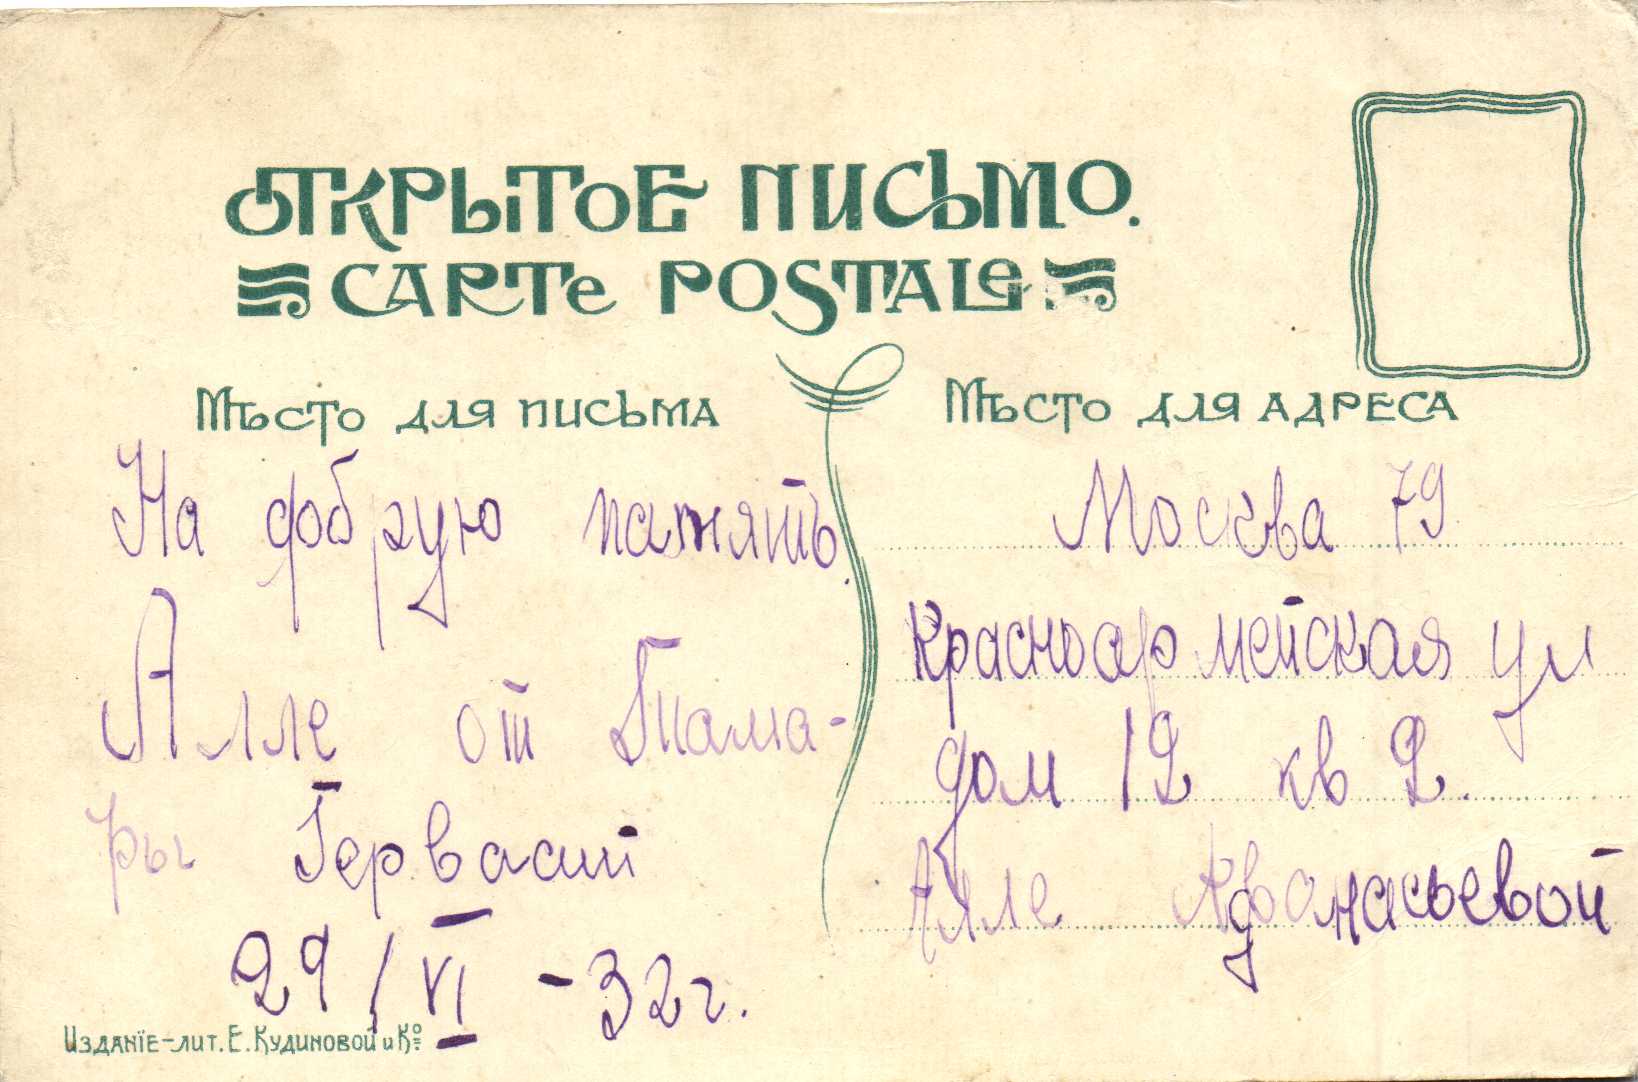 ОТКРЫТОЕ ПИСЬМО.
CARTE POSTALE
Мѣсто для письма
На добрую память.
Алле от Тама-
ры Гервасий
29/VI - 32 г.
Мѣсто для адреса
Москва 79
Красноармейская ул
дом 12 кв 2.
Алле Афонасьевой
Изданіе-лит. Е. Кудиновой и Ко